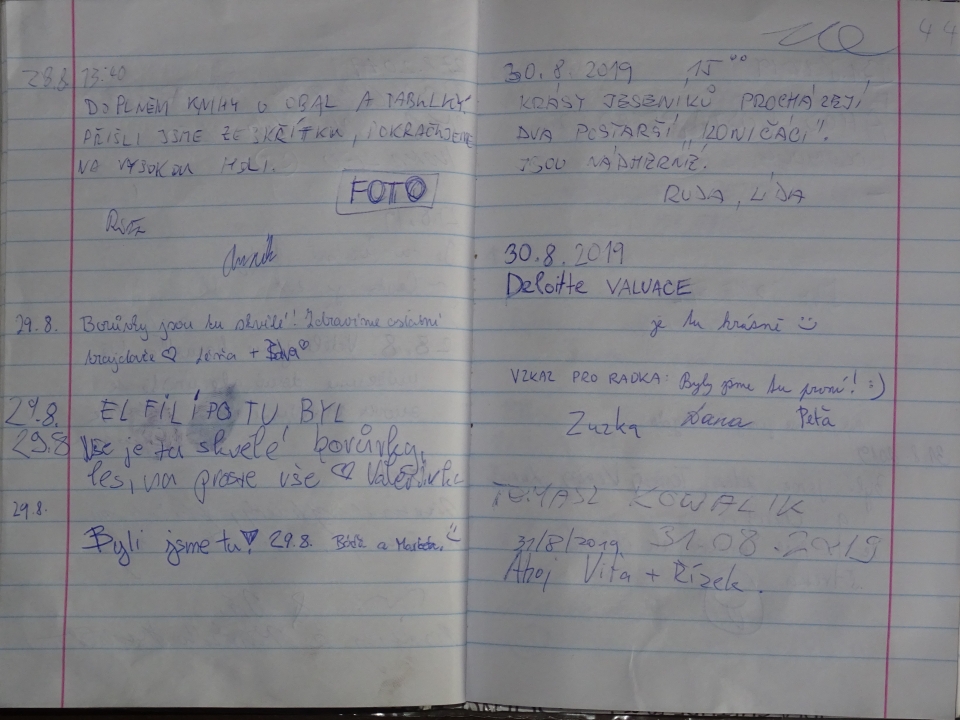 28.8. 13:40
DOPLNĚNÍ KNIHY O OBAL A TABULKY.
PŘIŠLI JSME ZE SKŘÍTKU, POKRAČUJEME
NA VYSOKOU HOLI.
FOTO
29.8. Borůvky jsou tu skvělé! Zdravíme ostatní
29.8. EL FILÍPO TU BYL
29.8 Vše je tu skvělé borůvky,
les, na prostě vše ♡
29.8.
Byli jsme tu! 29.8.
44
30.8.2019 15 00
KRÁSY JESENÍKŮ PROCHÁZEJÍ
DVA POSTARŠÍ „KONIČÁCI".
JSOU NÁDHERNÉ.
RUDA, LÍDA
30.8.2019
Deloitte VALUACE
je tu krásně ☺
VZKAZ PRO RADKA: Byly jsme tu první! :)
Zuzka Dana Petā
TOMASZ KOWALIK
31/8/2019 31.08.2019
Ahoj Víťa + Řízek.